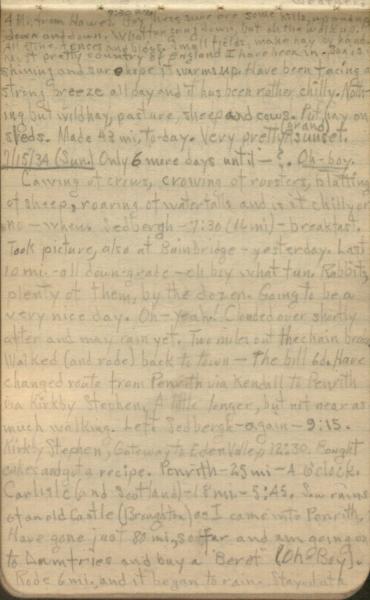 4 mi. from Hawes. Boy, there sure are some hills, up and up
down and down. What fun going down, but oh the walk up.
All stone fences and bldgs. Small fields, make hay by hand
prettiest country of England I have been in. Sun is
shining and sure hope it warms up. Have been facing a
strong breeze all day and it has been rather chilly. Noth-
ing but wild hay, pasture, sheep and cows. Put hay on
sleds. Made 43 mi. to-day. Very pretty (grand) sunset.
7/15/34 (Sun.) Only 6 more days until — Oh-boy.
Cawing of crows, crowing of roosters, blatting
of sheep, roaring of waterfalls and is it chilly or
no — whew. Sedbergh — 7:30 (16 mi) — breakfast.
Took picture, also at Bainbridge — yesterday. Last
10 mi. — all down-grade — oh boy what fun. Rabbits,
plenty of them, by the dozen. Going to be a
very nice day. Oh — Yeah! Clouded over shortly
after and may rain yet. Two miles out the chain broke
Walked (and rode) back to town — The bill 6d. Have
changed route from Penrith via Kendall to Penrith
via Kirkby Stephen. A little longer, but not near as
much walking. Left Sedbergh — again — 9:15.
Kirkby Stephen, Gateway to Eden Valley, 12:30. Bought
cakes and got a recipe. Penrith — 25 mi — 4 o'clock.
Carlisle (and Scotland) — 18 mi. — 5:45. Saw ruins
of an old Castle (Brougham) as I came into Penrith.
Have gone just 80 mi. so far and am going on
to Dumfries and buy a "Beret" (Oh Boy).
Rode 6 mi. and it began to rain. Stayed at a